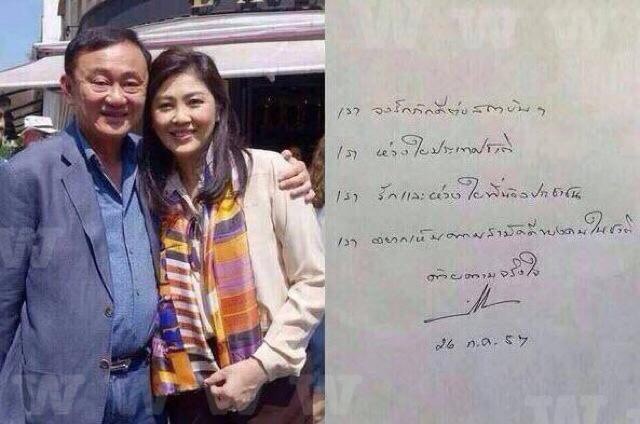 เรา จงรักภักดีต่อสถาบันฯ
เรา ห่วงใยประเทศชาติ
เรา รักและห่วงใยพี่น้องประชาชน
เรา อยากเห็นความสามัคคีของคนในชาติ
ด้วยความจริงใจ
๒๖ ก.ค. ๕๗